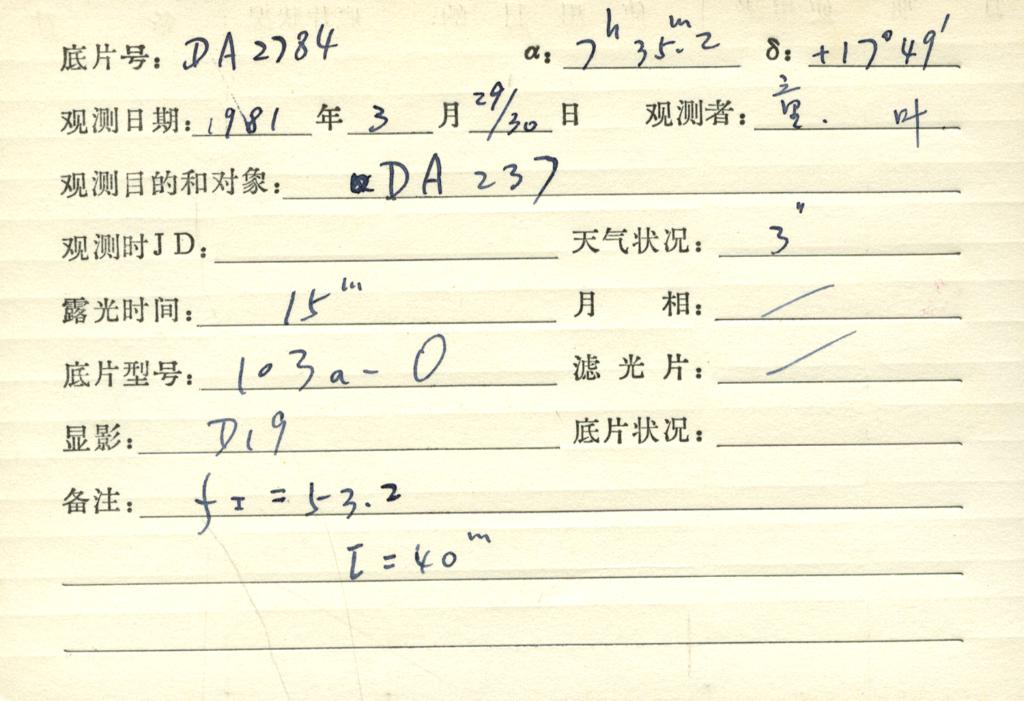 底片号: DA2784 α: 7ʰ 35ᵐ.2 δ: +17°49′
观测日期: 1981 年 3 月 29/30 日 观测者: 童. 叶.
观测目的和对象: DA 237
观测时JD: 天气状况: 3"
露光时间: 15ᵐ 月 相: /
底片型号: 103a-O 滤光片: /
显影: D19 底片状况:
备注: fI = 53.2
I = 40ᵐ